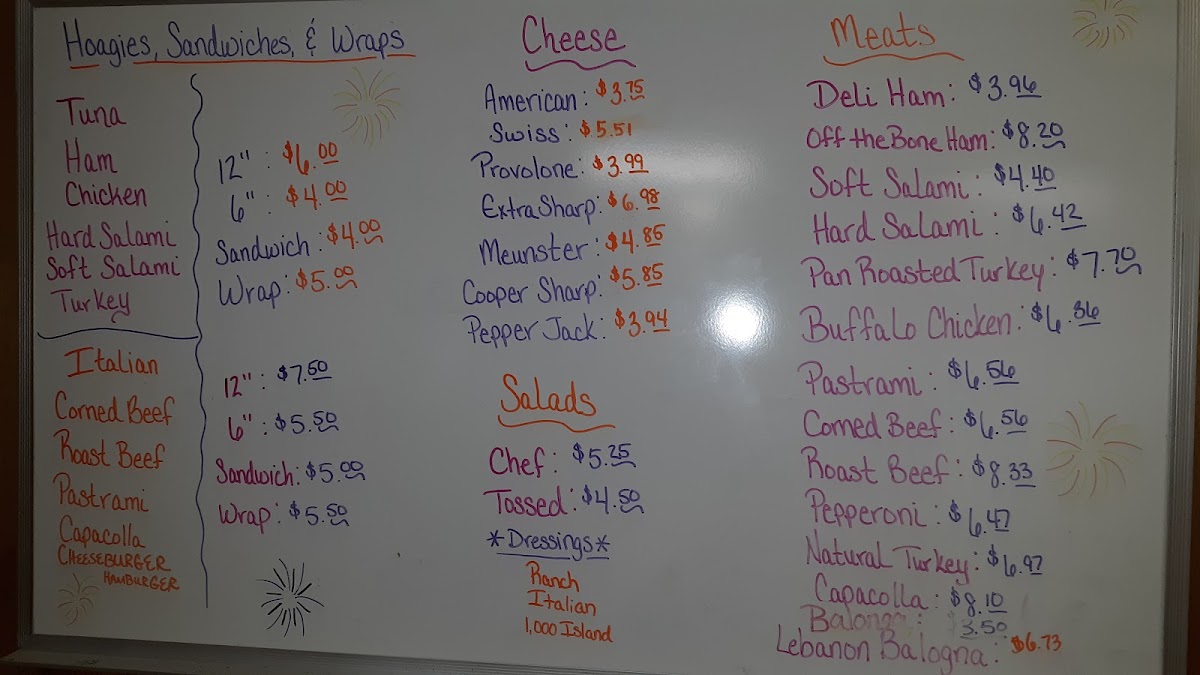 Hoagies, Sandwiches, & Wraps
Tuna
Ham
Chicken
Hard Salami
Soft Salami
Turkey
12" : $6.00
6" : $4.00
Sandwich : $4.00
Wrap : $5.00
Italian
Corned Beef
Roast Beef
Pastrami
Capacolla
CHEESEBURGER
HAMBURGER
12" : $7.50
6" : $5.50
Sandwich : $5.00
Wrap : $5.50
Cheese
American : $3.75
Swiss : $5.51
Provolone : $3.99
Extra Sharp : $6.98
Meunster : $4.85
Cooper Sharp : $5.85
Pepper Jack : $3.94
Salads
Chef : $5.25
Tossed : $4.50
*Dressings*
Ranch
Italian
1,000 Island
Meats
Deli Ham : $3.96
Off the Bone Ham : $8.20
Soft Salami : $4.40
Hard Salami : $6.42
Pan Roasted Turkey : $7.70
Buffalo Chicken : $6.36
Pastrami : $6.56
Corned Beef : $6.56
Roast Beef : $8.33
Pepperoni : $6.47
Natural Turkey : $6.97
Capacolla : $8.10
3.50
Lebanon Balogna : $6.73